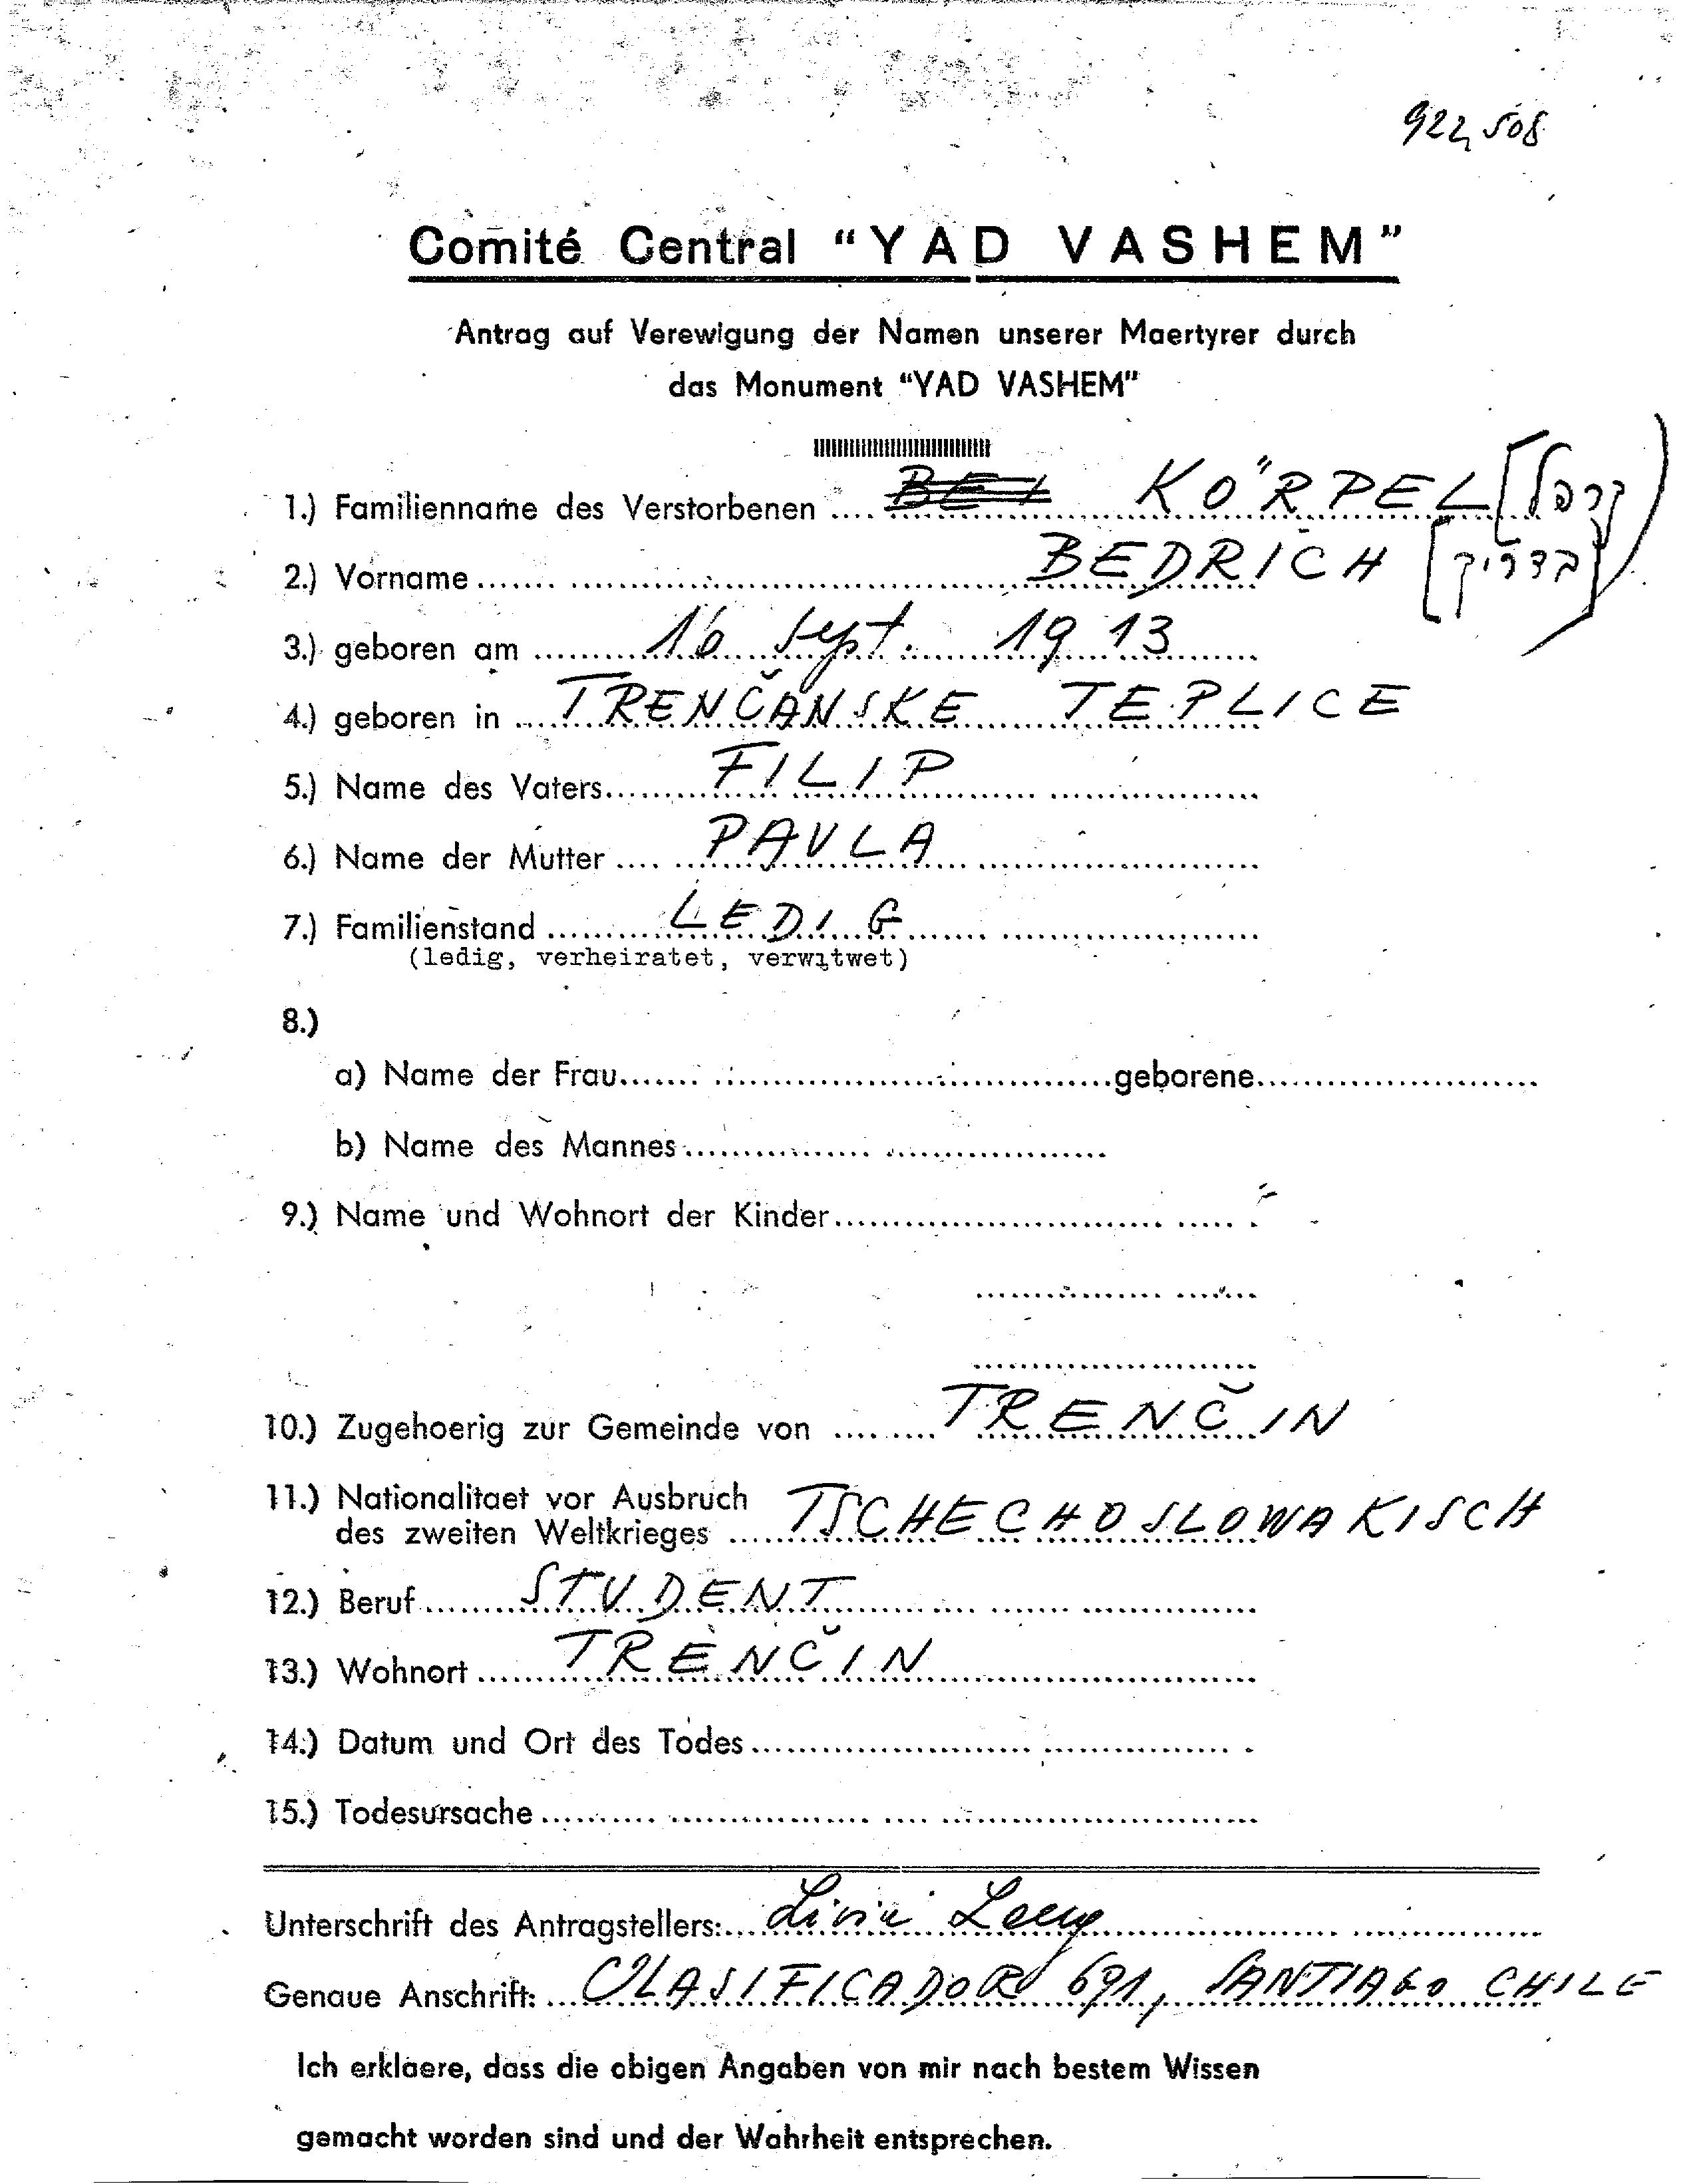 922,508
Comité Central "YAD VASHEM"
Antrag auf Verewigung der Namen unserer Maertyrer durch
das Monument "YAD VASHEM"
1.) Familienname des Verstorbenen .... KÖRPEL [קרפל]
2.) Vorname ....... BEDRICH [בדריך]
3.) geboren am ....... 16 Sept. 1913
4.) geboren in .... TRENČANSKE TEPLICE
5.) Name des Vaters....... FILIP
6.) Name der Mutter .... PAVLA
7.) Familienstand ....... LEDIG
(ledig, verheiratet, verwitwet)
8.)
a) Name der Frau....... geborene.......
b) Name des Mannes.......
9.) Name und Wohnort der Kinder.......
10.) Zugehoerig zur Gemeinde von ....... TRENČIN
11.) Nationalitaet vor Ausbruch
des zweiten Weltkrieges .... TSCHECHOSLOWAKISCH
12.) Beruf ....... STUDENT
13.) Wohnort ....... TRENČIN
14.) Datum und Ort des Todes.......
15.) Todesursache .......
Unterschrift des Antragstellers:... Livia
Genaue Anschrift: ... CLASIFICADOR 691, SANTIAGO CHILE
Ich erklaere, dass die obigen Angaben von mir nach bestem Wissen
gemacht worden sind und der Wahrheit entsprechen.